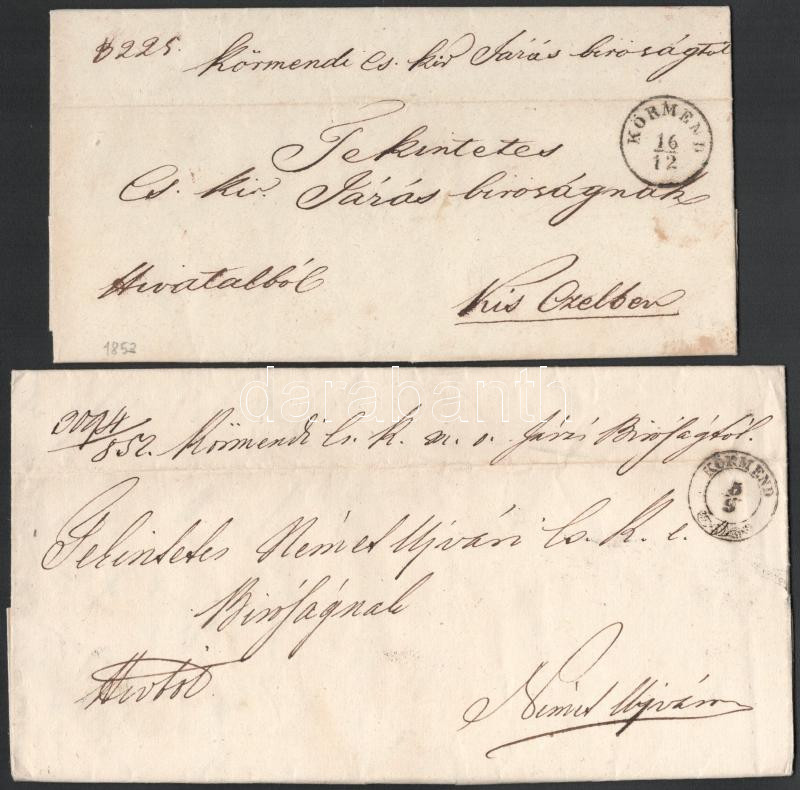 3225. Körmendi Cs. kir Járás biroságtol
KÖRMEND
16
12
Tekintetes
Cs. kir. Járás biroságnak
Hivatalból
Kis Czelben
1853
darabanth
3094
852. Körmendi Cs. K. m. o. Járási Biróságtól.
KÖRMEND
5
9
Tekintetes Német Ujvári Cs. K. e.
Biróságnak
Hivból
Német Ujváron